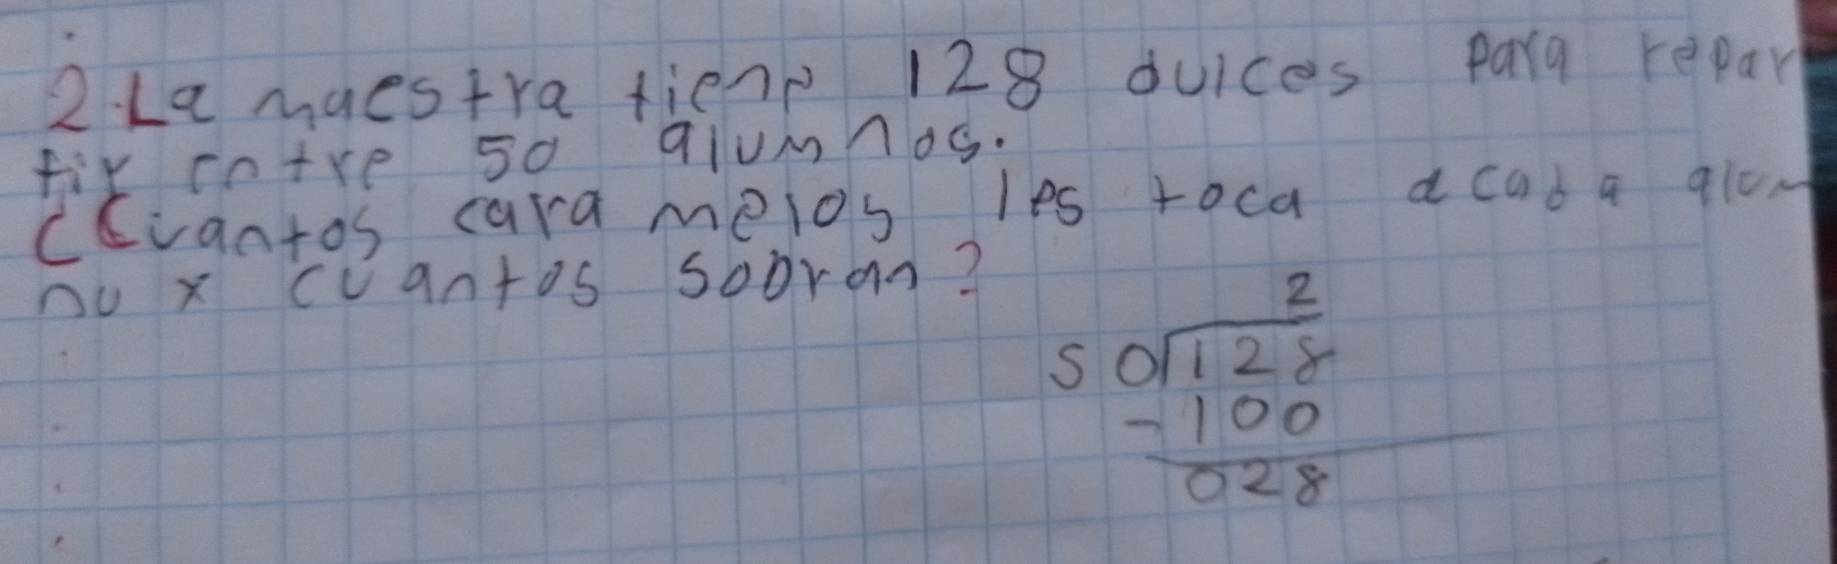 2. La maestra tiene 128 dulces para repar
tir entre 50 alumnos.
¿Cuantos caramelos les toca a cada alum
no x cuantos sobran?
2
50 128
-100
028